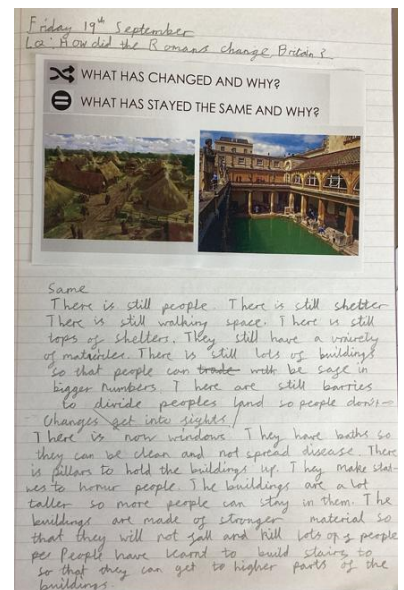 Friday 19th September
Lo: How did the Romans change Britain?
WHAT HAS CHANGED AND WHY?
WHAT HAS STAYED THE SAME AND WHY?
Same
There is still people. There is still shelter
There is still walking space. There is still
tops of shelters. They still have a
of There is still lots of buildings
so that people can trade with be safe in
bigger numbers. There are still barries
to divide peoples land so people don't
Changes get into fights.
There is now windows. They have baths so
they can be clean and not spread disease. There
is pillars to hold the buildings up. They make stat-
ues to honur people. The buildings are a lot
taller so more people can stay in them. The
buildings are made of stronger material so
that they will not fall and kill lots of people
People have learnt to build stairs to
so that they can get to higher parts of the
buildings.